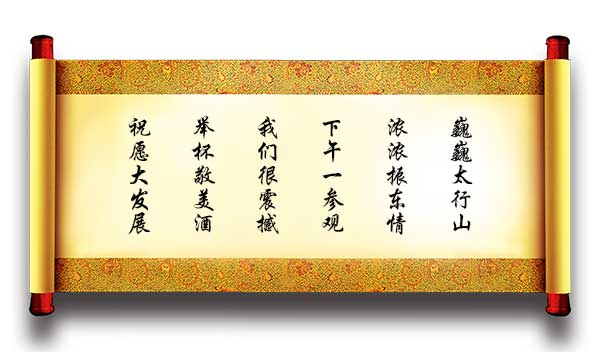 巍巍太行山
浓浓振东情
下午一参观
我们很震撼
举杯敬美酒
祝愿大发展